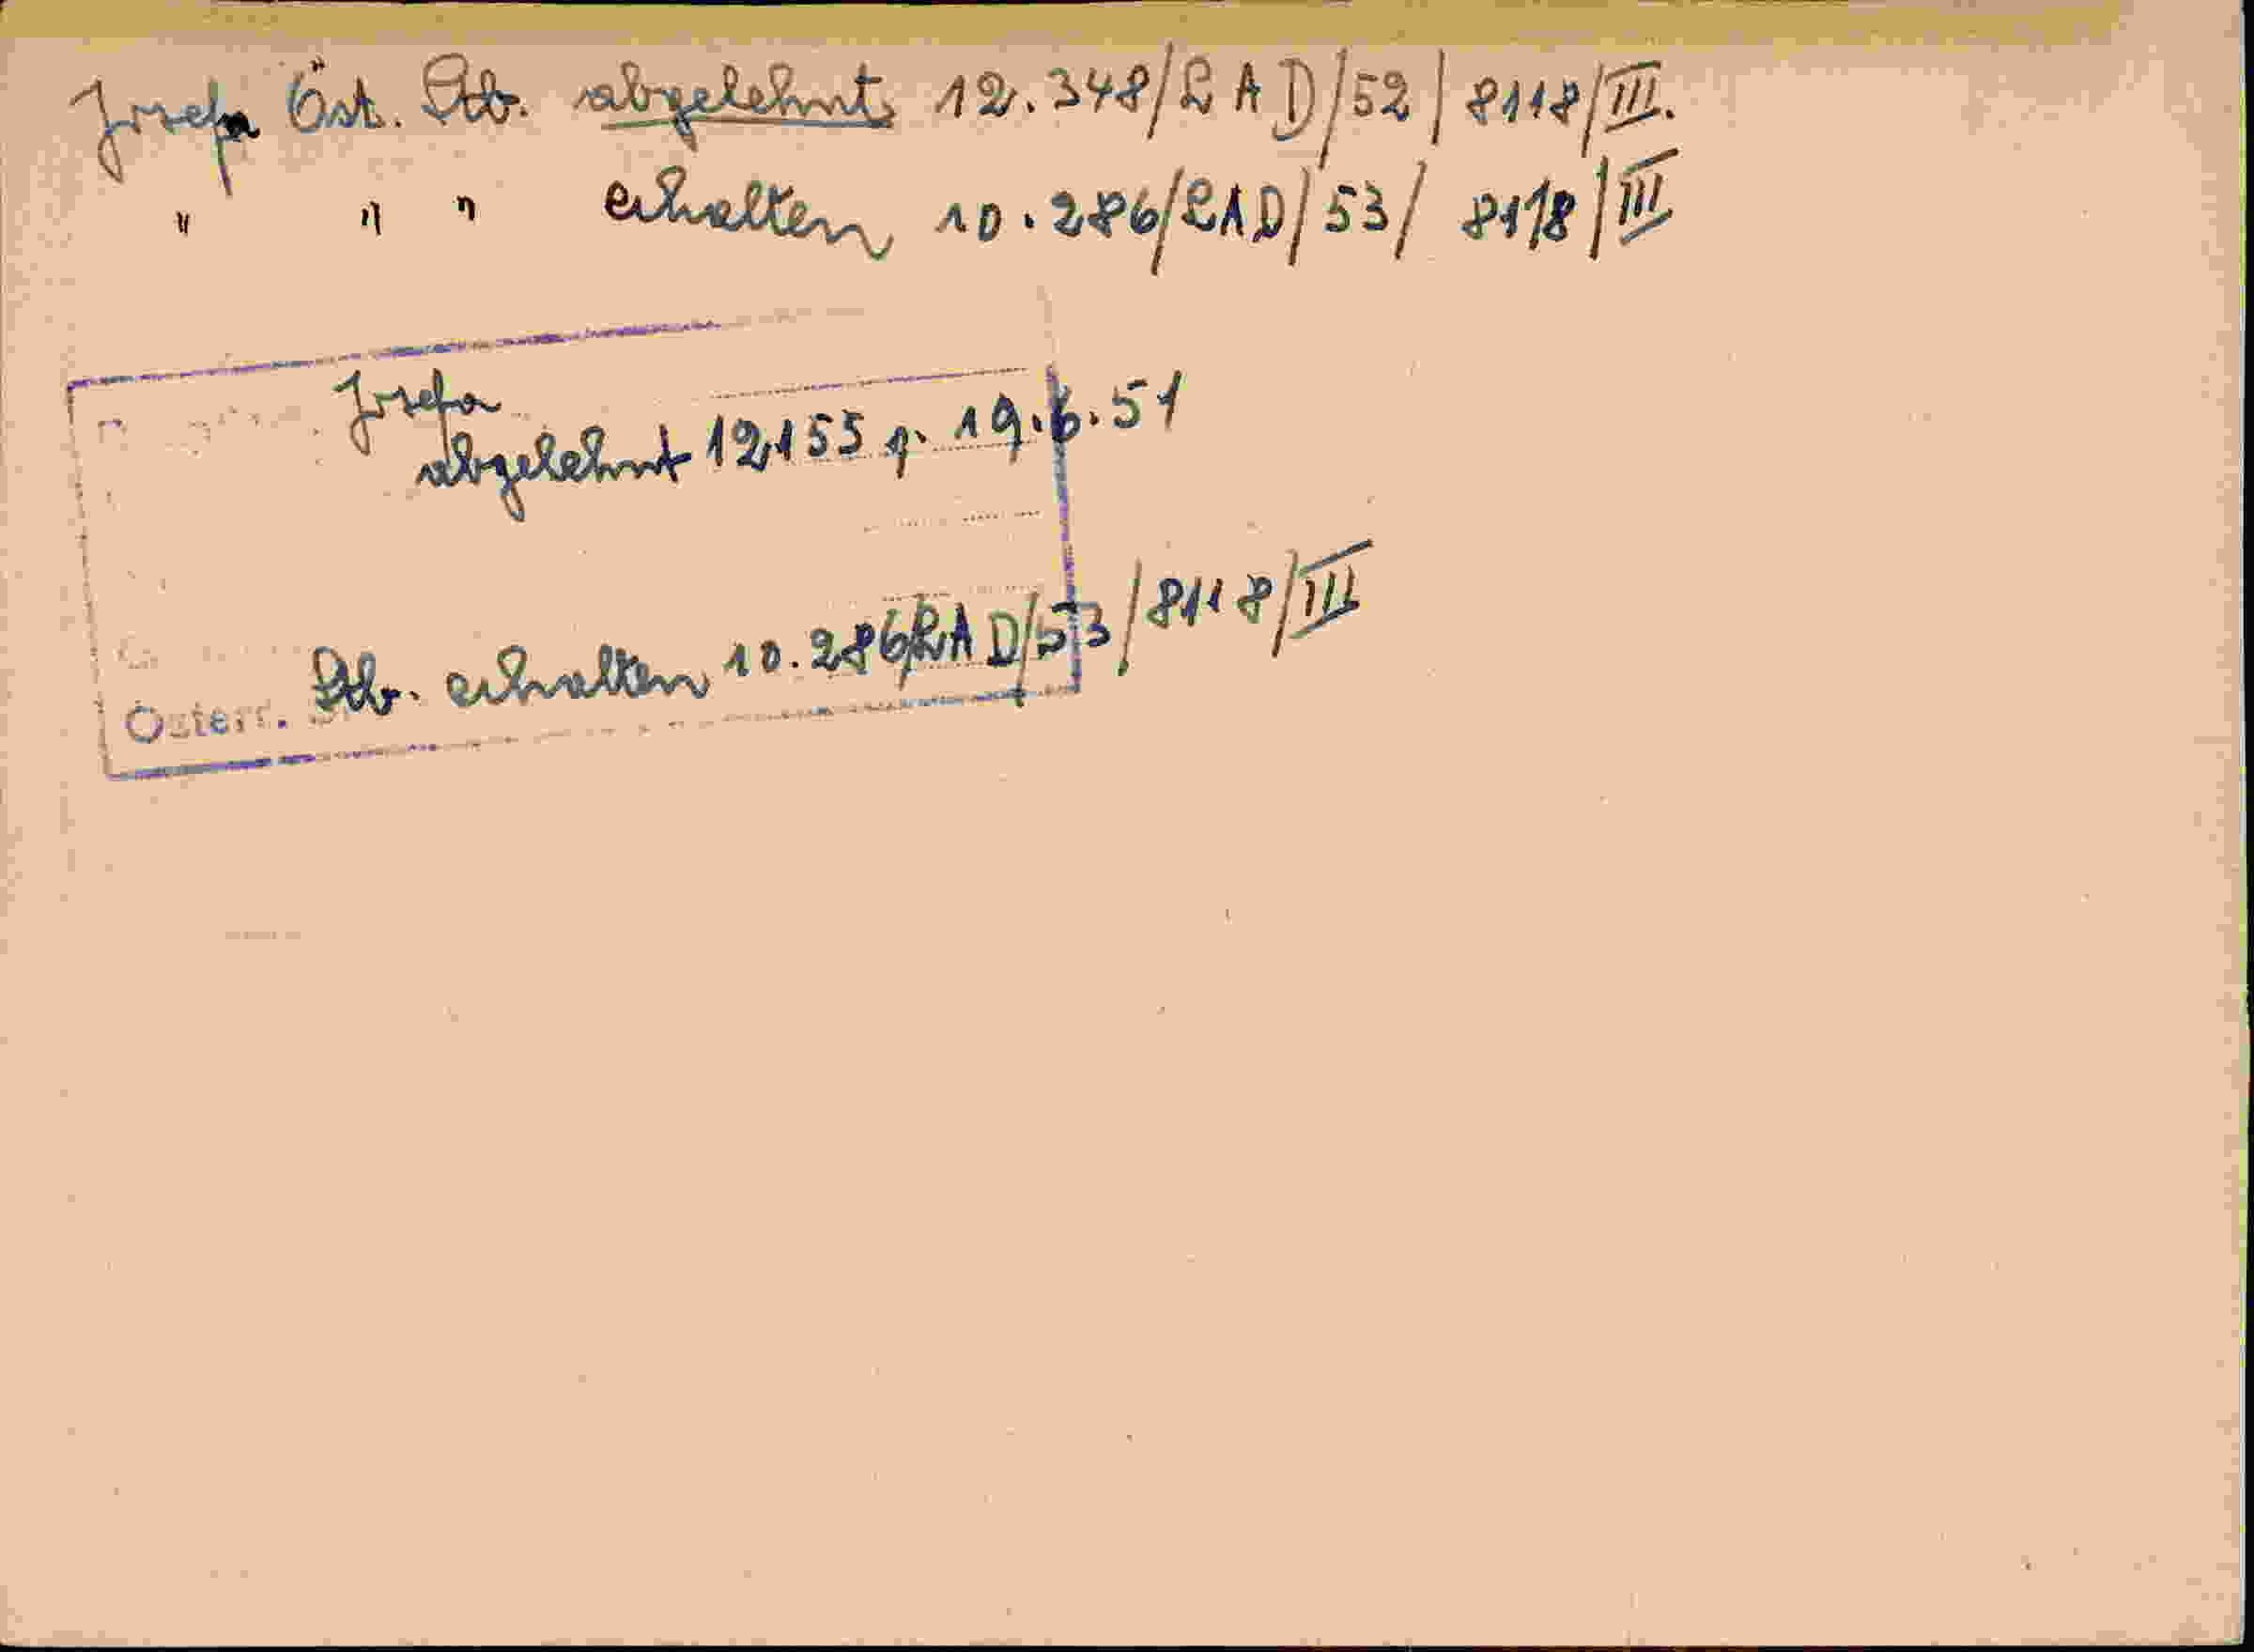 Josefa Öst. Stb. abgelehnt 12.348/LAD/52/8118/III.
" " " erhalten 10.286/LAD/53/8118/III
Josefa
abgelehnt 12.155 19.6.51
Österr. Stb. erhalten 10.286/LAD/53/8118/III